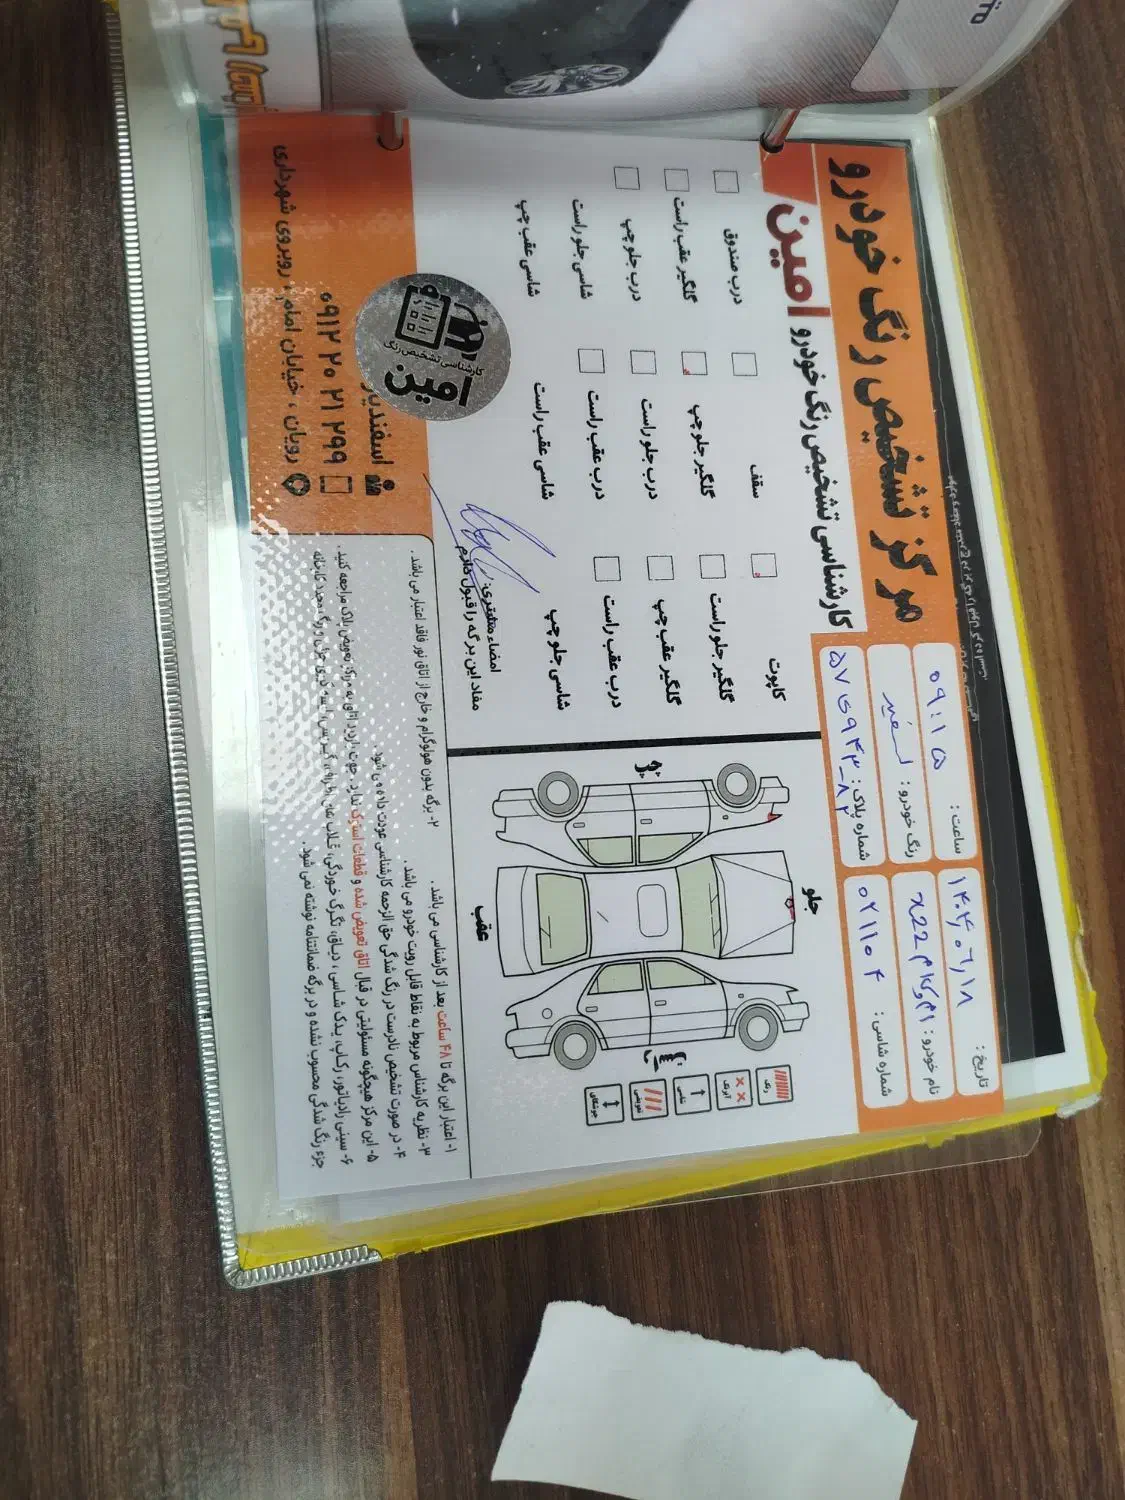 مرکز تشخیص رنگ خودرو
امین کارشناسی تشخیص رنگ خودرو
تاریخ: ۱۴۰۴,۰۶,۱۸
ساعت: ۰۹:۱۵
نام خودرو: ام وی ام x22
رنگ خودرو: سفید
شماره شاسی: ۰۲۱۱۰۴
شماره پلاک: ۵۷ی۹۴۳-۸۲
کاپوت
سقف
درب صندوق
گلگیر جلو راست
گلگیر جلو چپ
گلگیر عقب راست
گلگیر عقب چپ
درب جلو راست
درب جلو چپ
درب عقب راست
درب عقب راست
شاسی جلو راست
شاسی جلو چپ
شاسی عقب راست
شاسی عقب چپ
امضاء مشتری:
مفاد این برگه را قبول دارم
جلو
عقب
رنگ
شاسی
تعویض
جوشکاری
۱- اعتبار این برگه تا ۴۸ ساعت بعد از کارشناسی می باشد.
۲- برگه بدون هولوگرام و خارج از اتاق نور فاقد اعتبار می باشد.
۳- نظریه کارشناس مربوط به نقاط قابل رویت خودرو می باشد.
۴- در صورت تشخیص نادرست در رنگ شدگی حق الزحمه کارشناسی عودت داده می شود.
۵- این مرکز هیچگونه مسئولیتی در قبال اتاق تعویض شده و قطعات استوک ندارد جهت
۶- سینی رادیاتور، رکاب، یدک شاسی، دیاق، تگرگ خوردگی،
جزء رنگ شدگی محسوب نشده و در برگه ضمانتنامه نوشته نمی شود.
اسفندیار
۰۹۱۲ ۲۰ ۲۱ ۲۹۹
رویان، خیابان امام، روبروی شهرداری
کارشناسی تشخیص رنگ
امین